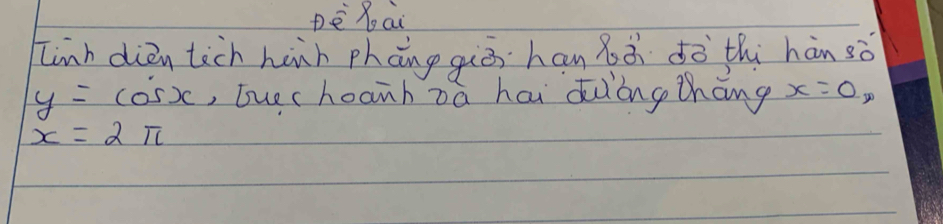 Đề bài
Tính diện tích hình phẳng giới hạn bởi đồ thị hàm số
y = cosx, trục hoành và hai đường thẳng x = 0,
x = 2π